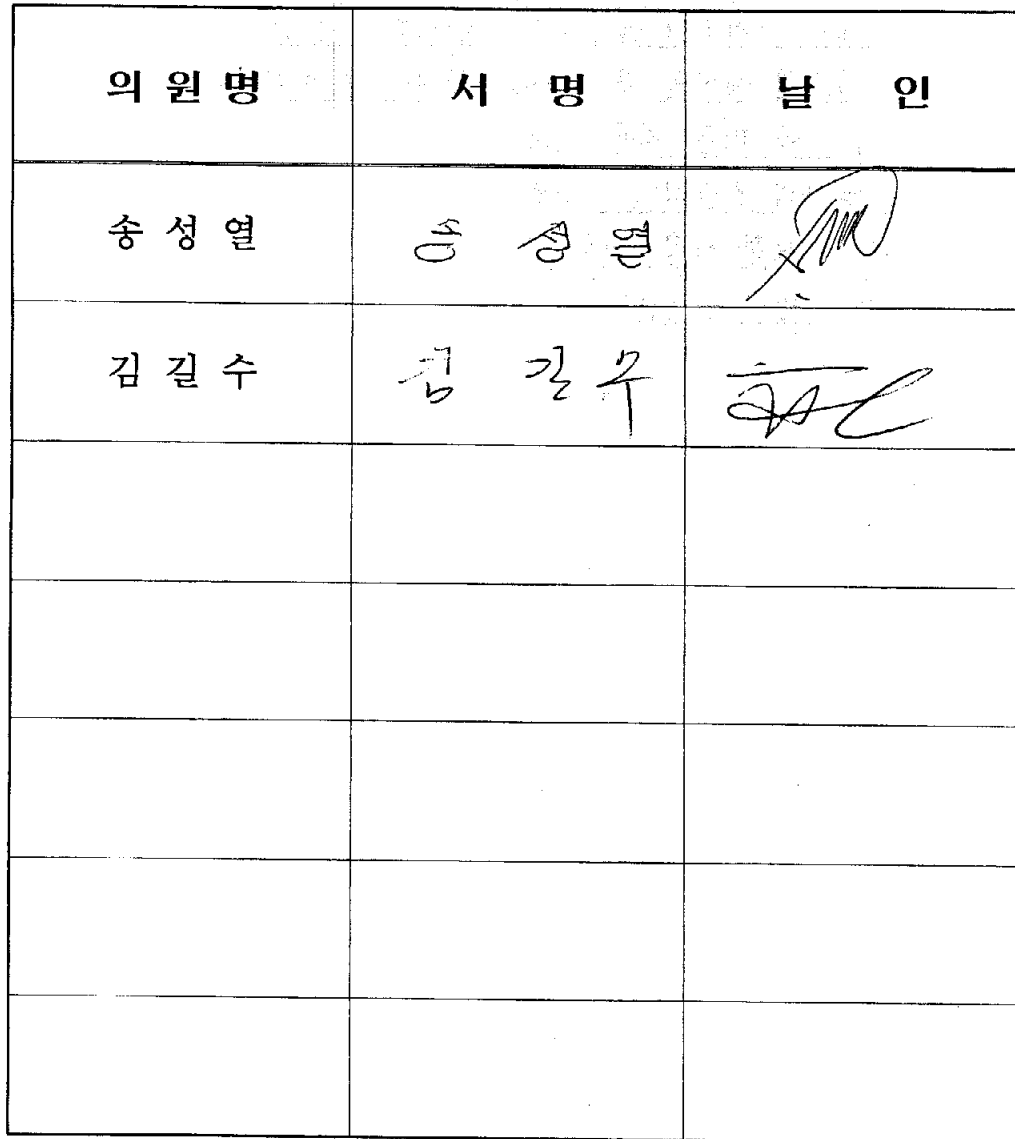 의원명 서명 날인
송성열 송성열
김길수 김길수